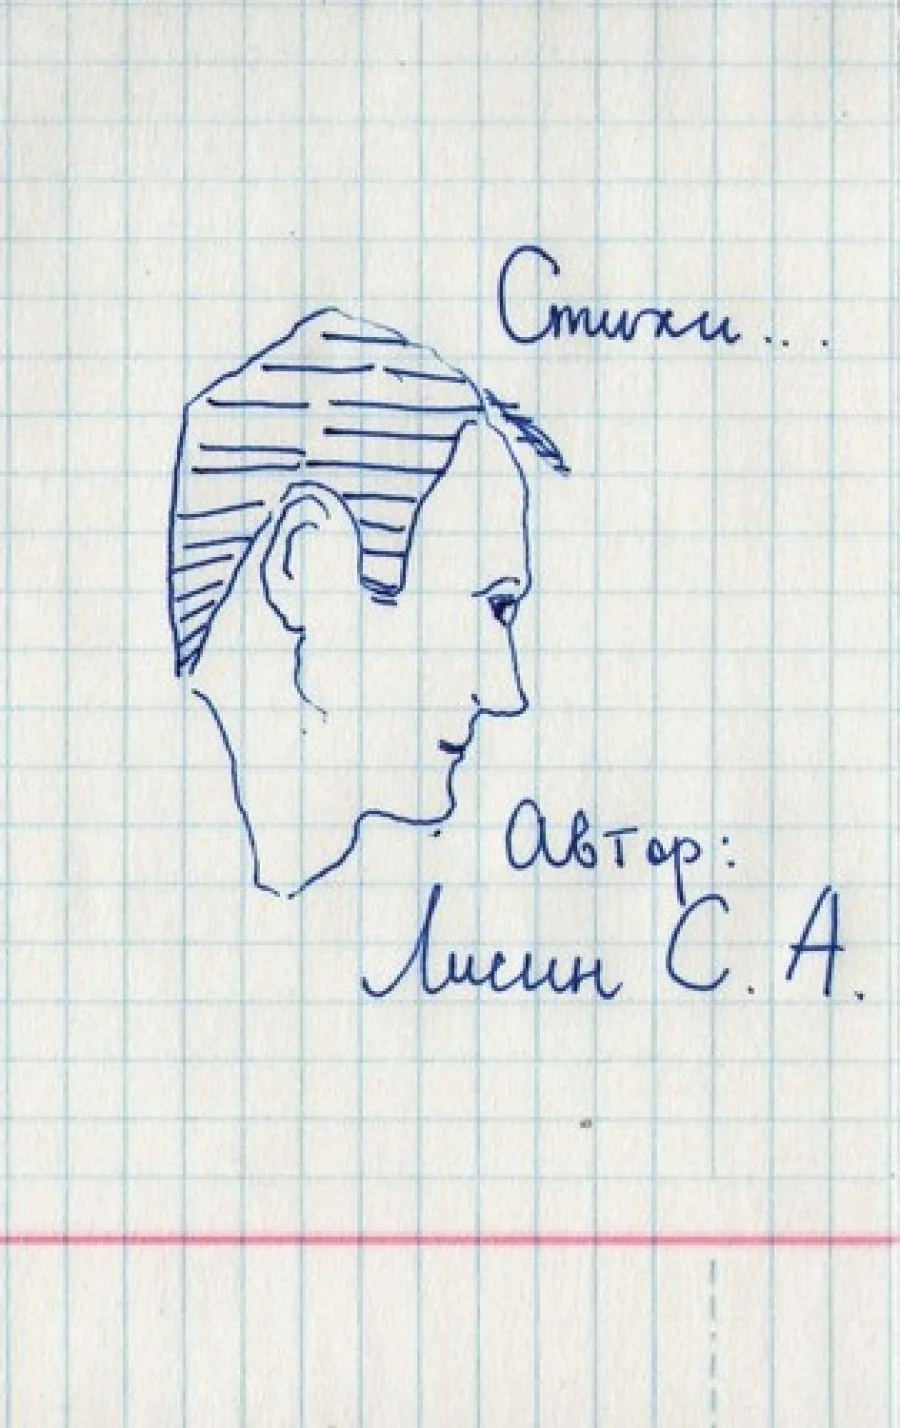 Стихи...
Автор:
Лисин С. А.